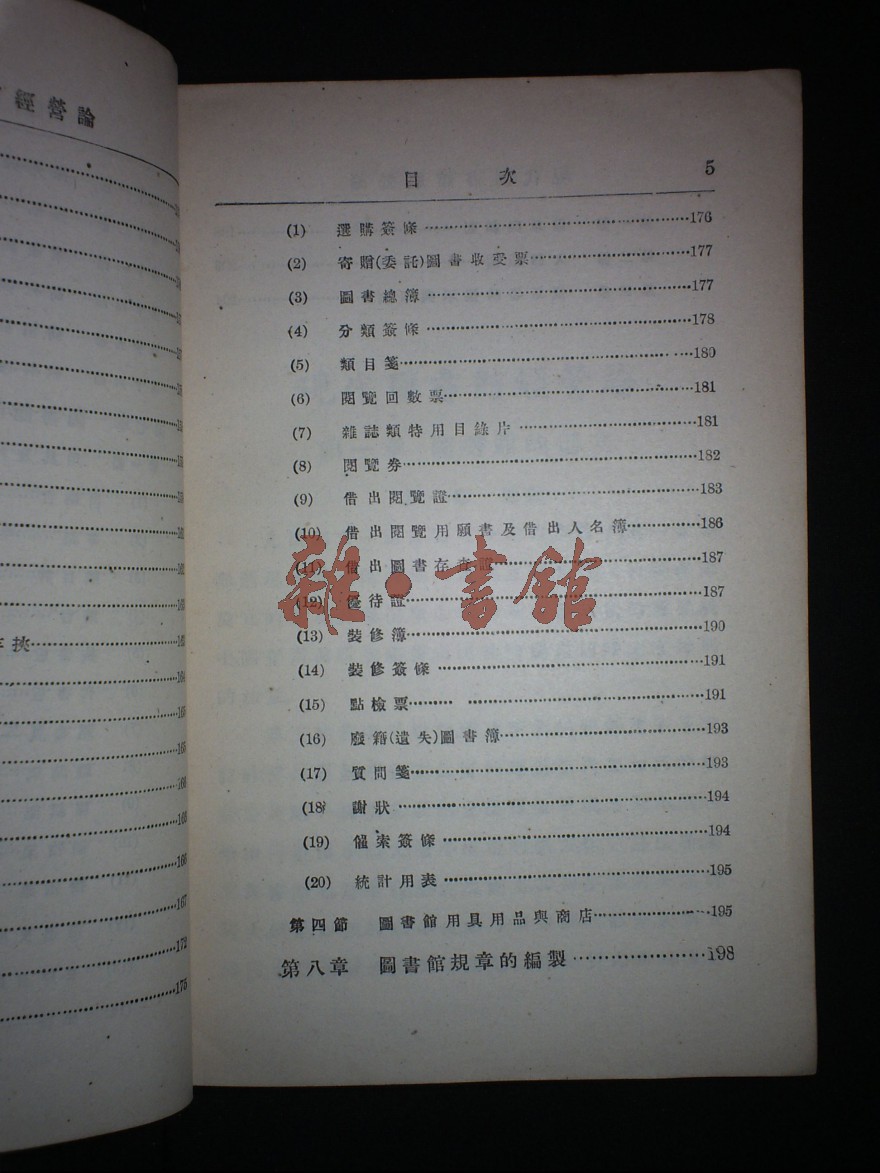 經營論
挾
163
164
165
165
168
168
166
167
172
175
目 次 5
(1) 選購簽條 176
(2) 寄贈(委託)圖書收受票 177
(3) 圖書總簿 177
(4) 分類簽條 178
(5) 類目箋 180
(6) 閱覽回數票 181
(7) 雜誌類特用目錄片 181
(8) 閱覽券 182
(9) 借出閱覽證 183
(10) 借出閱覽用願書及借出人名簿 186
(11) 借出圖書存查證 187
(12) 優待證 187
(13) 裝修簿 190
(14) 裝修簽條 191
(15) 點檢票 191
(16) 廢籍(遺失)圖書簿 193
(17) 質問箋 193
(18) 謝狀 194
(19) 催索簽條 194
(20) 統計用表 195
第四節 圖書館用具用品與商店 195
第八章 圖書館規章的編製 198
雜·書館